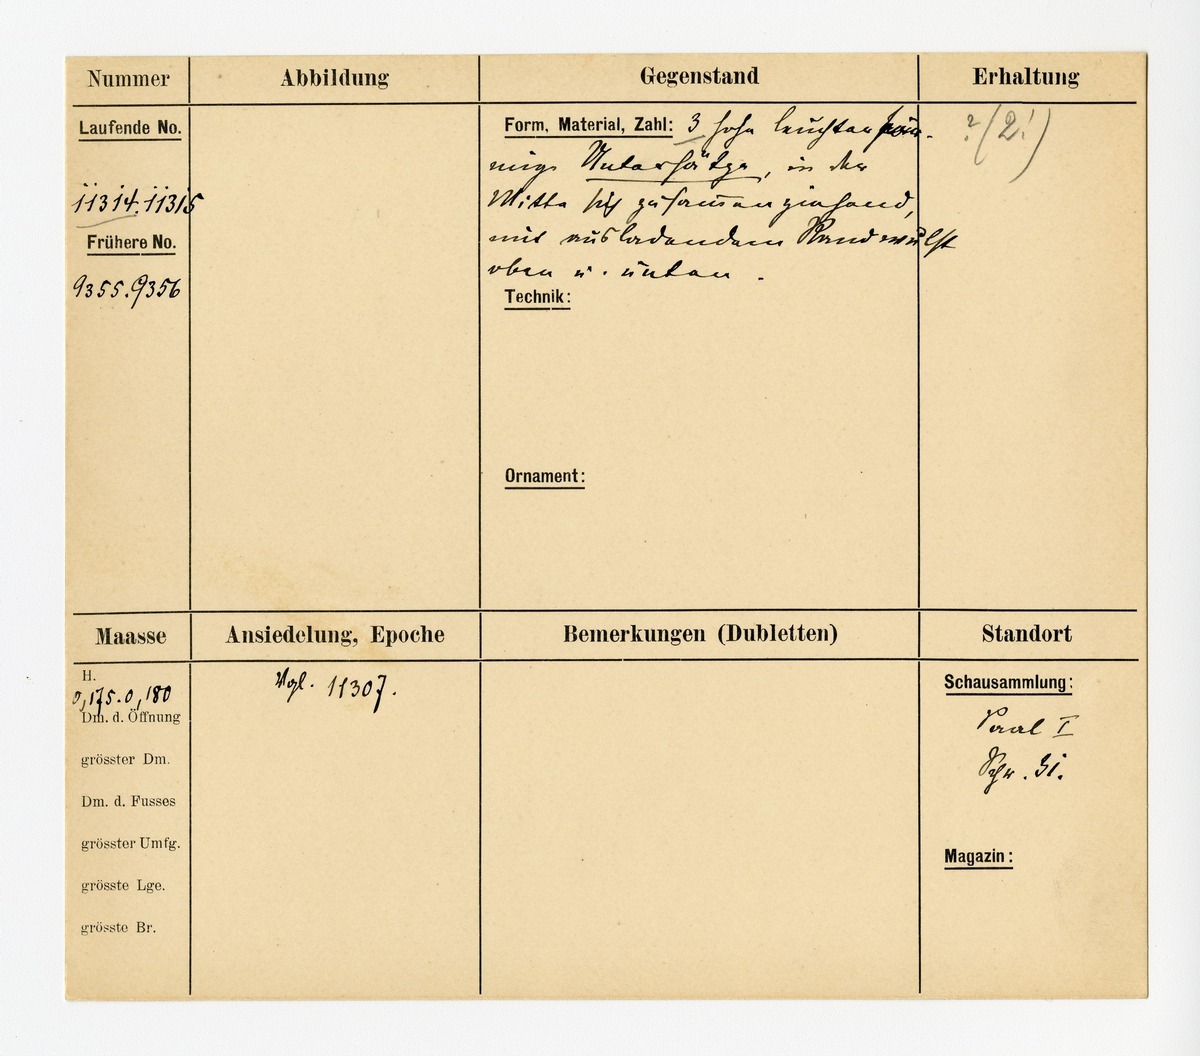 Nummer
Abbildung
Gegenstand
Erhaltung
Laufende No.
11314. 11315
Frühere No.
9355. 9356
Form, Material, Zahl: 3 hohe leuchterför-
mige Untersätze, in der
Mitte sich zusammenziehend,
mit ausladendem Randwulst
oben u. unten.
Technik:
Ornament:
? (2!)
Maasse
Ansiedelung, Epoche
Bemerkungen (Dubletten)
Standort
H.
0,175. 0,180
Dm. d. Öffnung
grösster Dm.
Dm. d. Fusses
grösster Umfg.
grösste Lge.
grösste Br.
Vgl. 11307.
Schausammlung:
Saal I
Schr. 31.
Magazin: